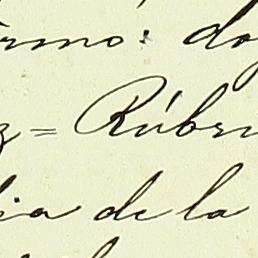 irmo: do
z = Rúbri
ia de la